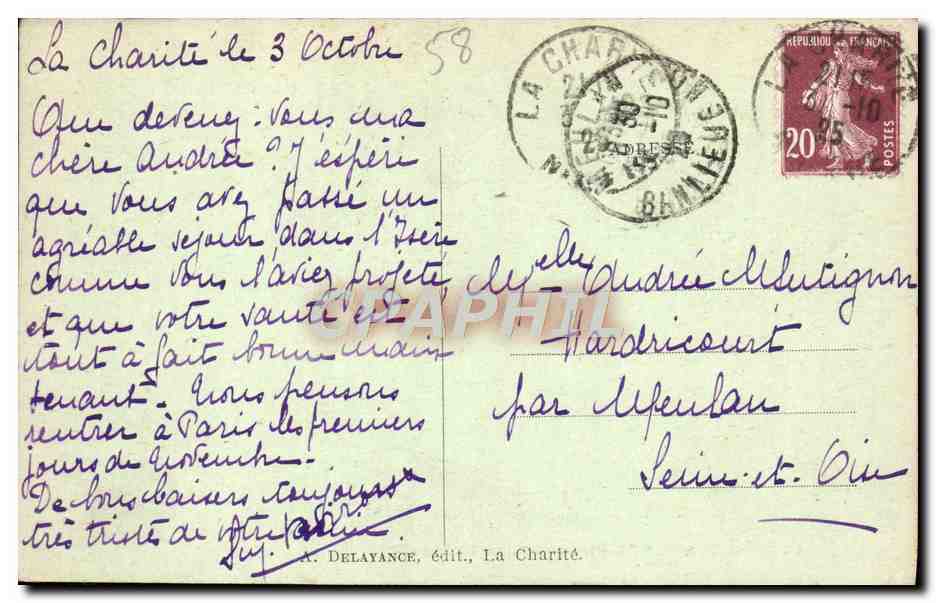 La Charité le 3 Octobre
58
Que devenez-vous ma
chère Andrée ? J'espère
que vous avez passé un
agréable séjour dans l'Isère
comme vous l'aviez projeté
et que votre santé est
tout à fait bonne main
tenant. Nous pensons
rentrer à Paris les premiers
jours de Novembre.
De bons baisers toujours
très tristes de votre
LA CHARITÉ
NIÈVRE
ADRESSE
REPUBLIQUE FRANÇAISE
20c
POSTES
Melle Andrée Mutignon
Hardricourt
par Meulan
Seine-et-Oise
CPAPHIL
A. DELAYANCE, édit., La Charité.